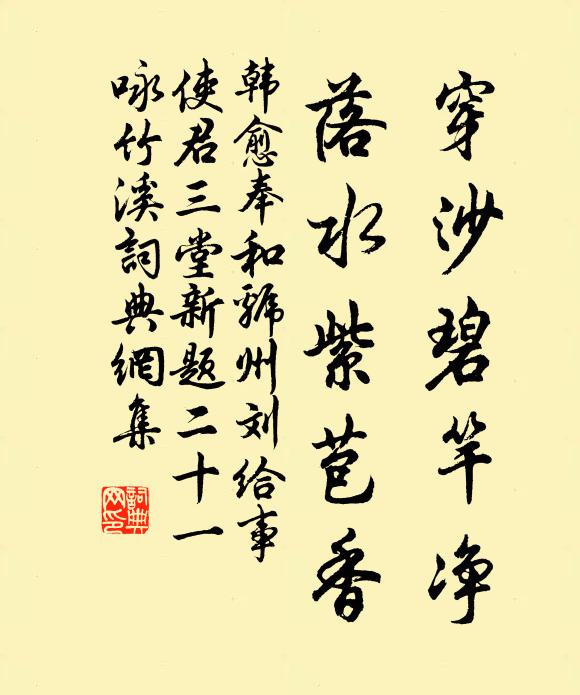 穿沙碧竿净
落水紫苞香
韩愈奉和虢州刘给事
使君三堂新题二十一
咏竹溪詞典網集
詞典网印